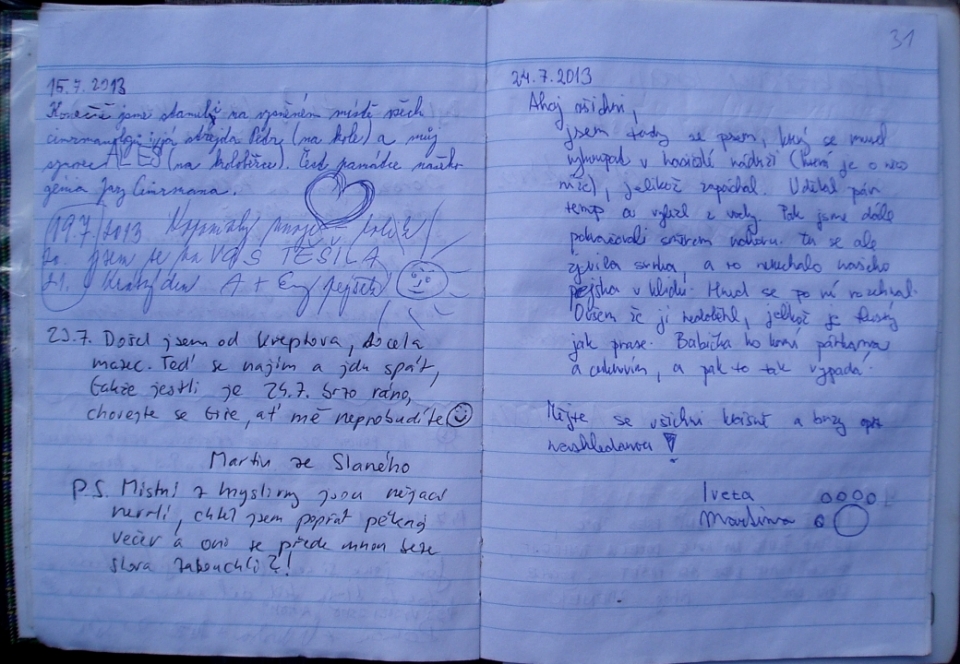 15.7.2013
Konečně jsme stanuli na vysněném místě všech
cimrmanologů já strejda Petr (na kole) a můj
synovec ALEŠ (na koloběžce). Čest památce našeho
génia Járy Cimrmana.
19.7. 2013
20. jsem se na VÁS TĚŠILA
21. Krásný den A + Eny pejsek
23.7. Došel jsem od Kreptova, docela
mazec. Teď se najím a jdu spát,
takže jestli je 24.7. brzo ráno,
chovejte se tiše, ať mě neprobudíte
Martin ze Slaného
P.S. Místní z myslivny jsou nějací
nervní, chtěl jsem popřát pěkný
večer a oni se přede mnou beze
slova zabouchli?!
31
24.7.2013
Ahoj všichni,
jsem tady se psem, který se musel
vykoupat v hasičské nádrži (která je o něco
níže), jelikož zapáchal. Udělal pár
temp a vylezl z vody. Tak jsme dále
pokračovali směrem nahoru. Tu se ale
zjevila srnka, a to nenechalo našeho
pejska v klidu. Hned se po ní rozehnal.
Ovšem že ji nedoběhl, jelikož je tlustý
jak prase. Babička ho krmí párkama
a cukrovím, a pak to tak vypadá!
Mějte se všichni krásně a brzy
naschledanou!
Iveta
Martina